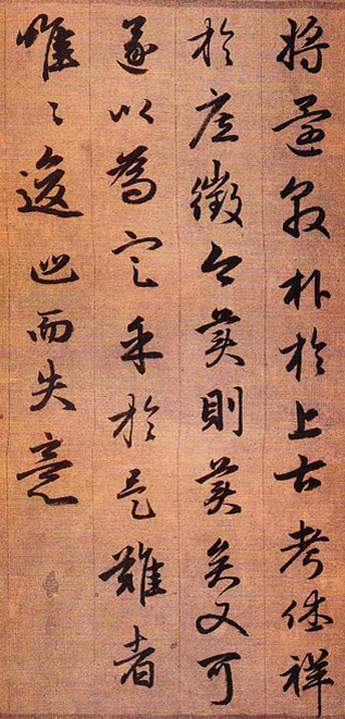 將還敦朴於上古考休祥
於庶徵今美則美矣又可
遂以為定乎於是難者
唯〻逡巡而失意